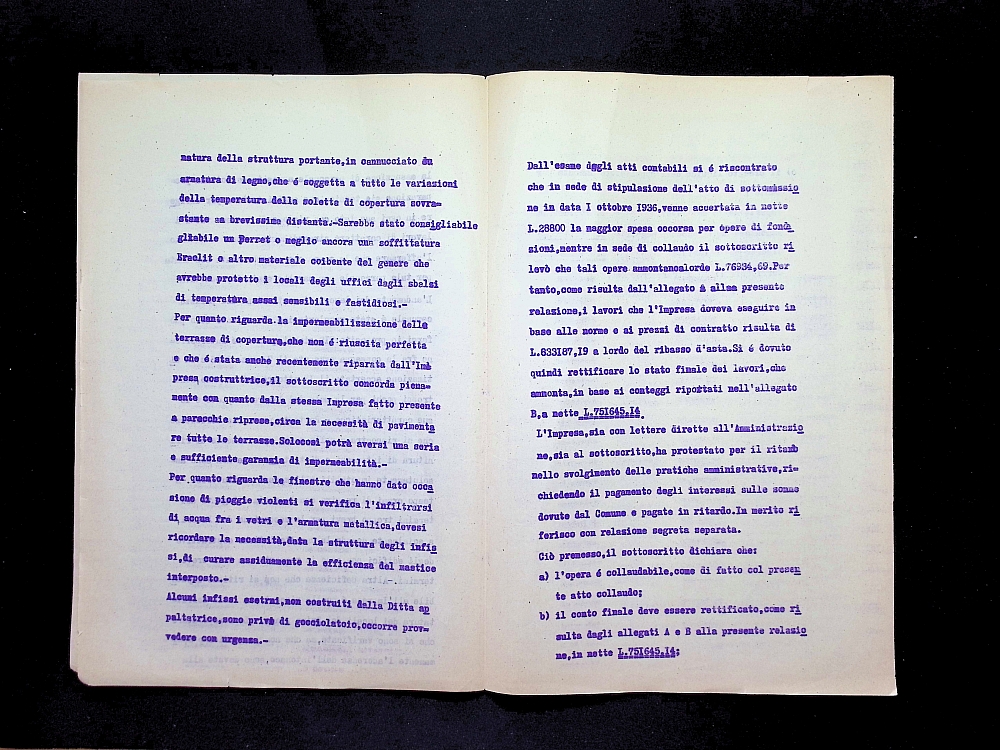 natura della struttura portante,in cannucciato du
armatura di legno,che é soggetta a tutte le variazioni
della temperatura della soletta di copertura sovra=
stante sa brevissime distanta.-Sarebbe stato consigliabile
gliabile un Perret o meglio ancora una soffittatura
Eraclit o altro materiale coibente del genere che
avrebbe protetto i locali degli uffici dagli sbalzi
di temperatura assai sensibili e fastidiosi.-
Per quanto riguarda la impermeabilizzazione delle
terrazze di copertura,che non é riuscita perfetta
e che é stata anche recentemente riparata dall'Im=
presa costruttrice,il sottoscritto concorda piena=
mente con quanto dalla stessa Impresa fatto presente
a parecchie riprese,circa la necessità di pavimenta
re tutte le terrazze.Solocosi potrà aversi una seria
e sufficiente garanzia di impermeabilità.-
Per quanto riguarda le finestre che hanno dato occa
sione di pioggie violenti si verifica l'infiltrarsi
di acqua fra i vetri e l'armatura metallica,devesi
ricordare la necessità,data la struttura degli infis
si,di curare assiduamente la efficienza del mastice
interposto.-
Alcuni infissi esetrni,non costruiti dalla Ditta ap
paltatrice,sono privi di gocciolatoio,occorre prov=
vedere con urgenza.-
Dall'esame dagli atti contabili si é riscontrato
che in sede di stipulazione dell'atto di sottomissio
ne in data I ottobre I936,venne accertata in nette
L.28800 la maggior spesa occorsa per opere di fonda
sioni,mentre in sede di collaudo il sottoscritto ri
levò che tali opere ammontanoalorde L.76934,69.Per
tanto,come risulta dall'allegato A allma presente
relazione,i lavori che l'Impresa doveva eseguire in
base alle norme e ai prezzi di contratto risulta di
L.833I87,I9 a lordo del ribasso d'asta.Si é dovuto
quindi rettificare lo stato finale dei lavori,che
ammonta,in base ai conteggi riportati nell'allegato
B,a nette L.75I645,I4.
L'Impresa,sia con lettere dirette all'Amministrazio
ne,sia al sottoscritto,ha protestato per il ritardo
nello svolgimento delle pratiche amministrative,ri=
chiedendo il pagamento degli interessi sulle somme
dovute dal Comune e pagate in ritardo.In merito ri
ferisco con relazione segreta separata.
Ciò premesso,il sottoscritto dichiara che:
a) l'opera é collaudabile,come di fatto col presen
te atto collaudo;
b) il conto finale deve essere rettificato,come ri
sulta dagli allegati A e B alla presente relazio
ne,in nette L.75I645,I4;